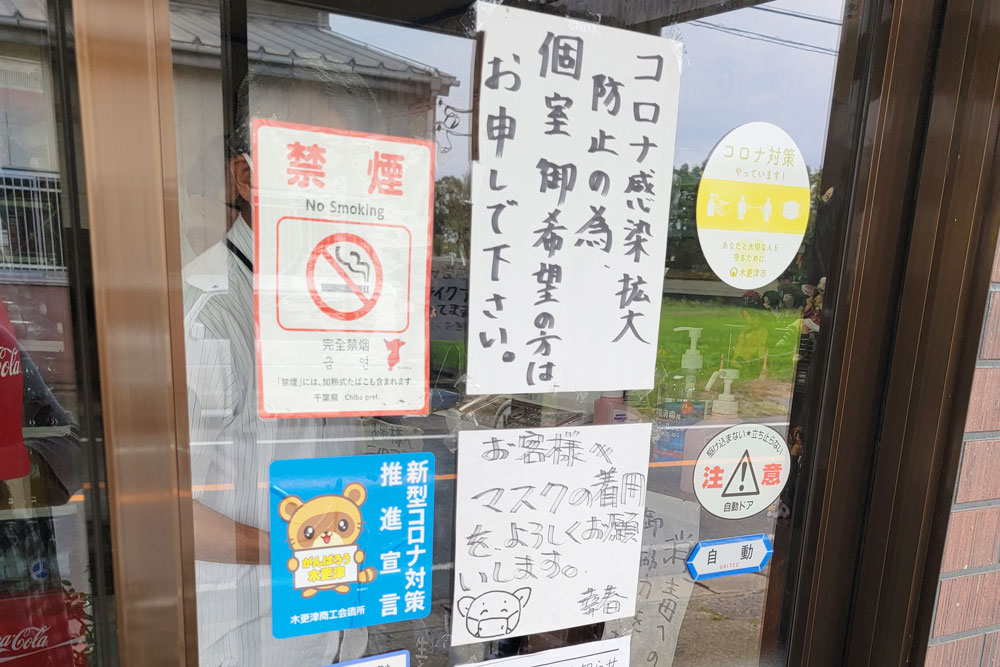 コロナ感染拡大
防止の為、
個室御希望の方は
お申しで下さい。
禁煙
No Smoking
完全禁煙
금연
「禁煙」には、加熱式たばこも含まれます
千葉県 Chiba pref.
コロナ対策
やっています!
あなたと大切な人を
守るために。
木更津市
お客様へ
マスクの着用
をよろしくお願
いします。
新型コロナ対策
推進宣言
がんばろう
木更津
木更津商工会議所
駆け込まない★立ち止らない
注意
自動ドア
自動
UNITED
Coca-Cola